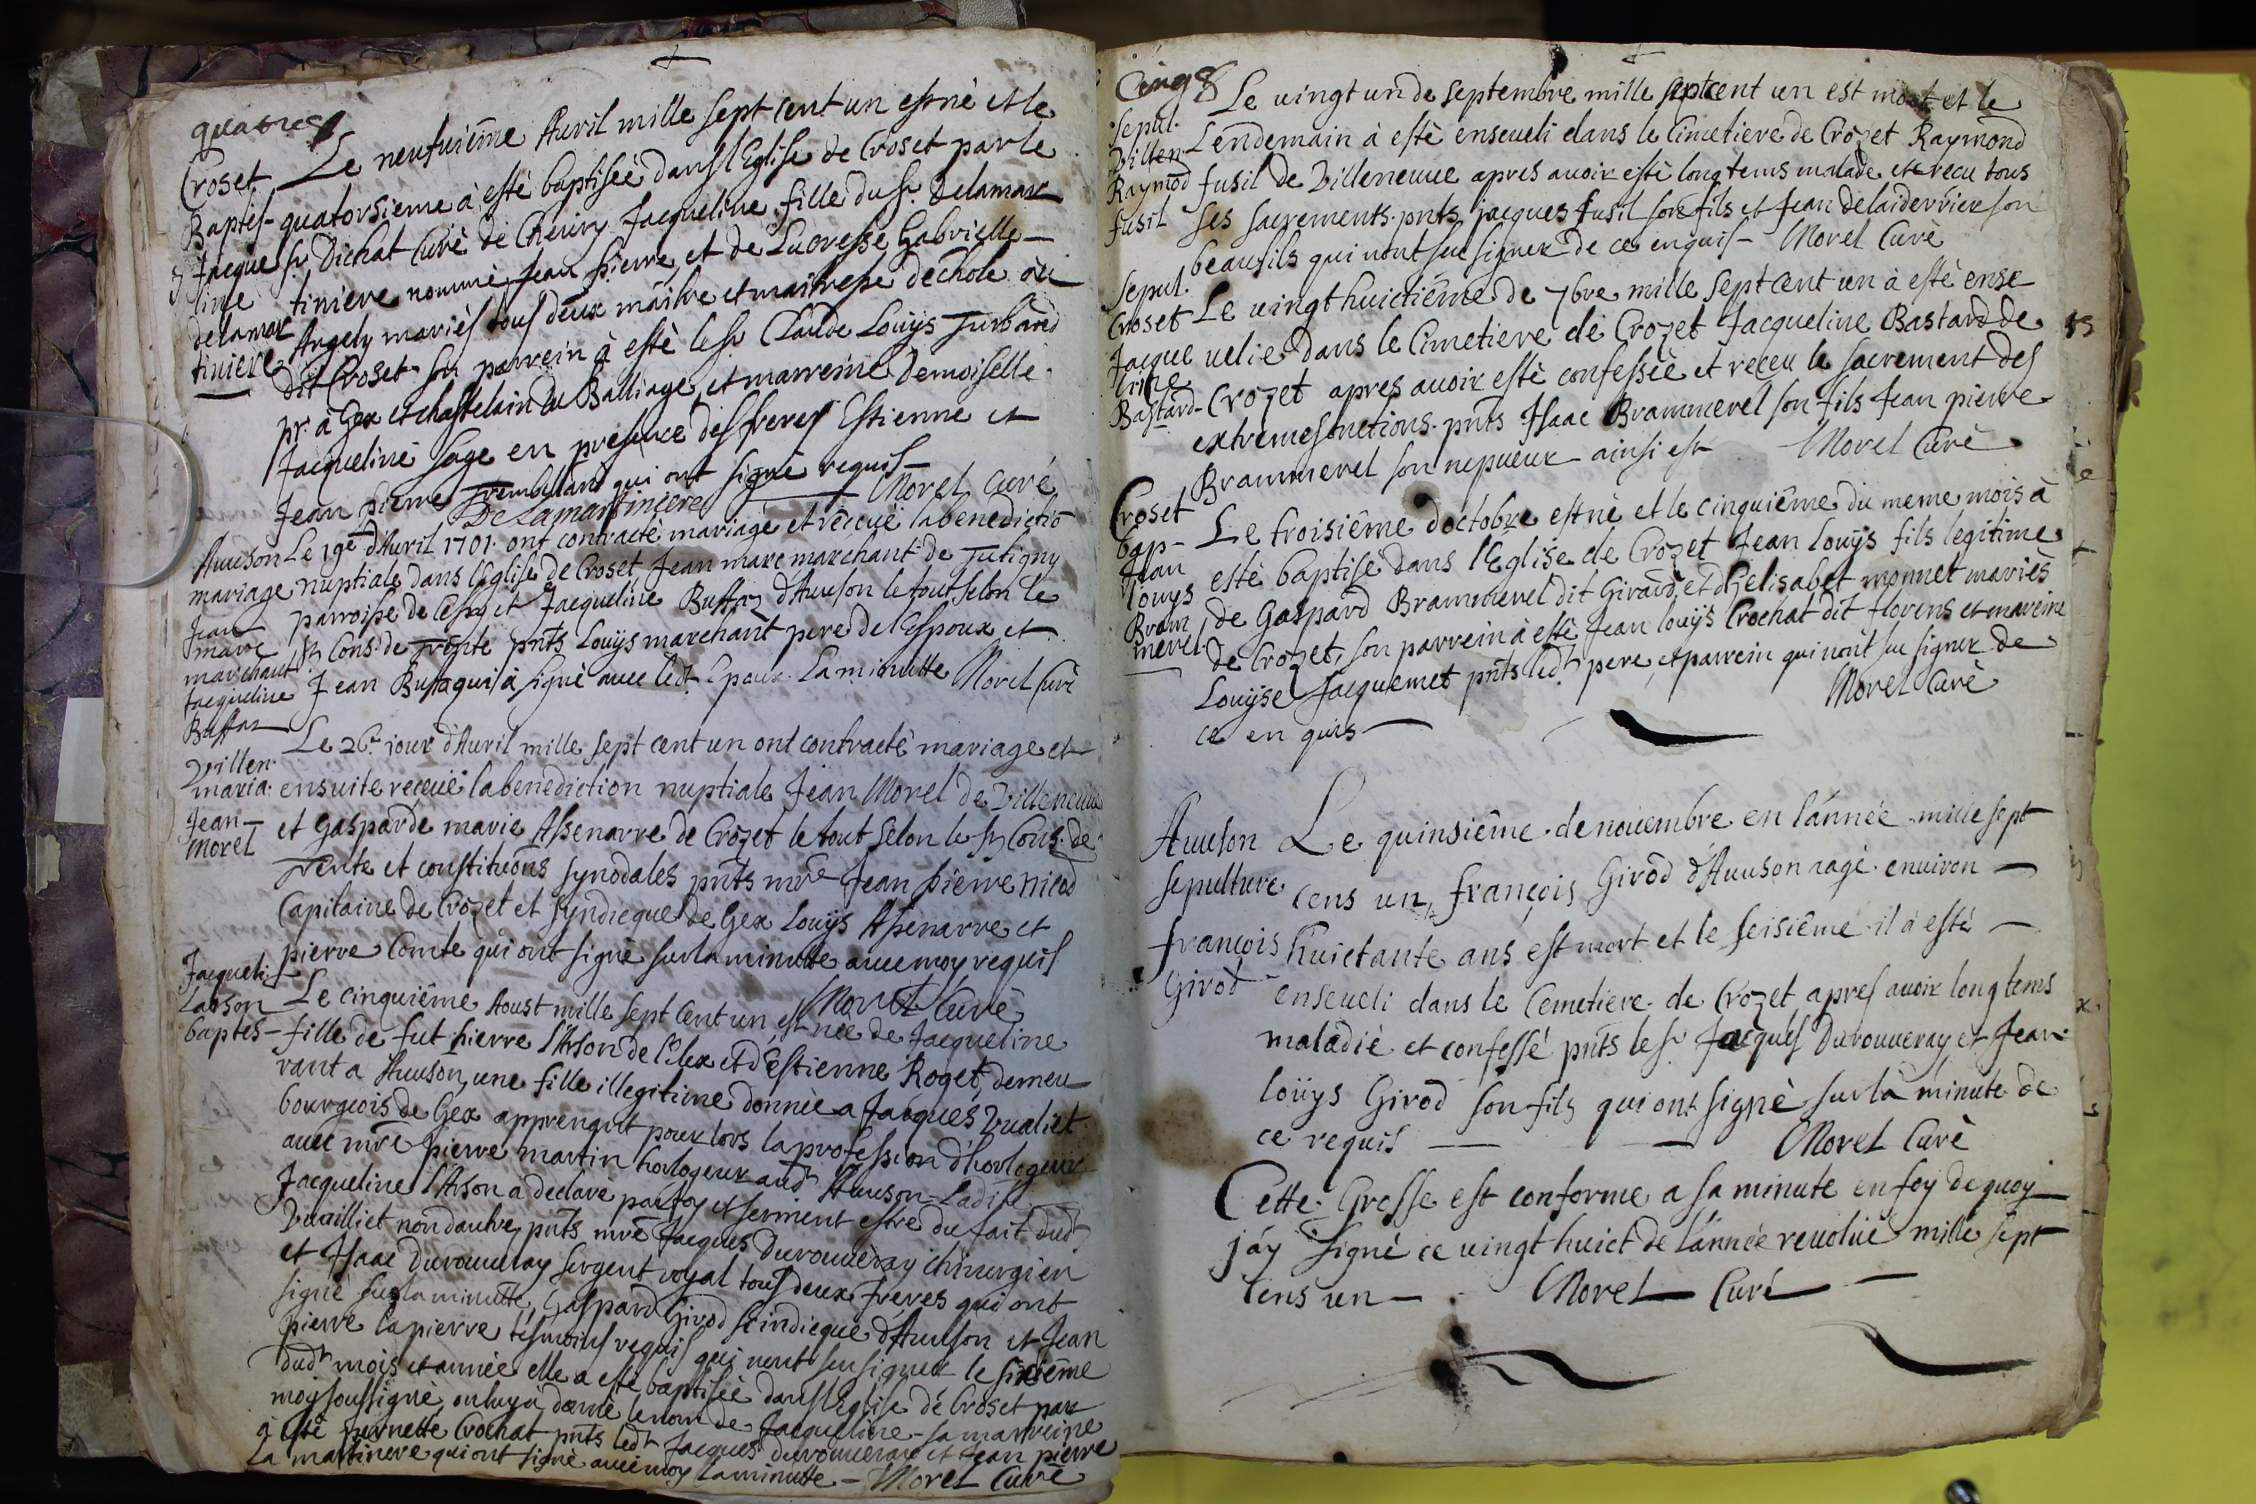 quatre
Croset
Baptes-
Jacque
line
delamar
tiniere
Le neufuiême Auril mille sept cent un est né et le
quatorsieme à esté baptisée dans l'Eglise de Croset par le
sr Dichat Curé de Cheuiry Jacqueline fille du sr. Delamar
tiniere nommé Jean pierre et de Lucresse Gabrielle
Angely mariés tous deux maitre et maitresse dechole au
dit Croset son parrein à esté le sr Claude Louys Jurband
pr. à Gex et chastelain du Balliage et marreine Demoiselle
Jacqueline Sage en presence des freres Estienne et
Jean pierre Tremblaud qui ont signé requis
Morel Curé
De Lamartiniere
Auuson
mariage
Jean
marc
marchant
Jacqueline
Buffaz
Le 19e d'Auril 1701. ont contracté mariage et receuë la benedictiō
nuptiale dans l'Eglise de Croset Jean marc marchant de Jutigny
parroisse de Cessy et Jacqueline Buffaz d'Auuson le tout selon le
st Cons. de Trente pnts Louys marchant pere de l'Espoux et
Jean Buffaz qui à signé auec ledt Epoux. La minutte Morel Curé
Villen.
maria.
Jean
Morel
Le 26e. jour d'Auril mille sept cent un ont contracté mariage et
ensuite receuë la benediction nuptiale Jean Morel de Villeneuue
et Gasparde marie Assenarre de Crozet le tout selon le st Cons. de
Trente et constitutiōns synodales pnts mre Jean pierre nicod
Capitaine de Crozet et syndicque de Gex Louys Assenarre et
pierre Comte qui ont signé sur la minutte auec moy requis
Morel Curé
Jacqueli.
Larson
baptes-
Le cinquiême Aoust mille sept cent un, est née de Jacqueline
fille de fut pierre l'Arson de l'Elex et d'Estienne Roget, demeu
rant a Auuson, une fille illegitime donnee a Jacques Vualiet
bourgeois de Gex apprengit pour lors la profession d'horlogeur
auec mre pierre martin horlogeur audt Auuson Ladite
Jacqueline l'Arson a declaré par foy et serment estre du fait dudt
Vuailliet non d'autre, pnts mre Jacques Durouueray chirurgien
et Isaac Durouueray sergent royal tous deux freres qui ont
signé sur la minutte, Gaspard Girod scindicque d'Auuson et Jean
pierre lapierre tesmoins requis qui n'ont sçu signer le sixiême
dudt mois et année elle a esté baptisée dans l'Eglise de Croset par
moy soussigné, on luy à donné le nom de Jacqueline sa marreine
à esté pernette Crochat pnts ledt Jacques durouueray et Jean pierre
La martinere qui ont signé auec moy la minutte - Morel Curé
Cinq
Sepul.
Villen
Raymōd
fusil
Le uingt un de septembre mille sept cent un est mort et le
Lendemain à esté enseueli dans le Cimetiere de Crozet Raymond
fusil de Villeneuue apres auoir esté long tems malade et recu tous
ses sacrements. pnts jacques fusil son fils et Jean delaiderrier son
beaufils qui n'ont sçu signer de ce enquis - Morel Curé
Sepul.
Croset
Jacque
line
Bastard-
Le uingt huictiême de 7bre mille sept cent un à esté ense
uelie dans le Cimetiere de Crozet Jacqueline Bastard de
Crozet apres auoir esté confessée et receu le sacrement des
extremes onctions. pnts Isaac Brammerel son fils Jean pierre
Brammerel son nepueux ainsi est Morel Curé
Croset
bap-
Jean
louys
Bram
merel.
Le troisiême d'octobre est né et le cinquiême du meme mois à
esté baptisé dans l'Eglise de Crozet Jean louys fils legitime
de Gaspard Brammerel dit Giraud, et d'helisabet monnet mariés
de Crozet, son parrein à esté Jean louys Crochat dit florens et mareine
Louyse Jacquemet pnts ledt pere, et parrein qui n'ont sçu signer de
ce en quis Morel Curé
Auuson
Sepulture
françois
Girod
Le quinsiême de nouembre en l'année mille sept
cens un, françois Girod d'Auuson agé enuiron
huictante ans est mort et le seisiême il à esté
enseueli dans le Cemetiere de Crozet apres auoir long tems
maladié et confessé pnts le sr Jacques Durouueray et Jean
louys Girod son fils qui ont signé sur la minute de
ce requis Morel Curé
Cette Grosse est conforme a sa minute en foy de quoy
j'ay signé ce uingt huict de l'année reuoluë mille sept
cens un Morel Curé